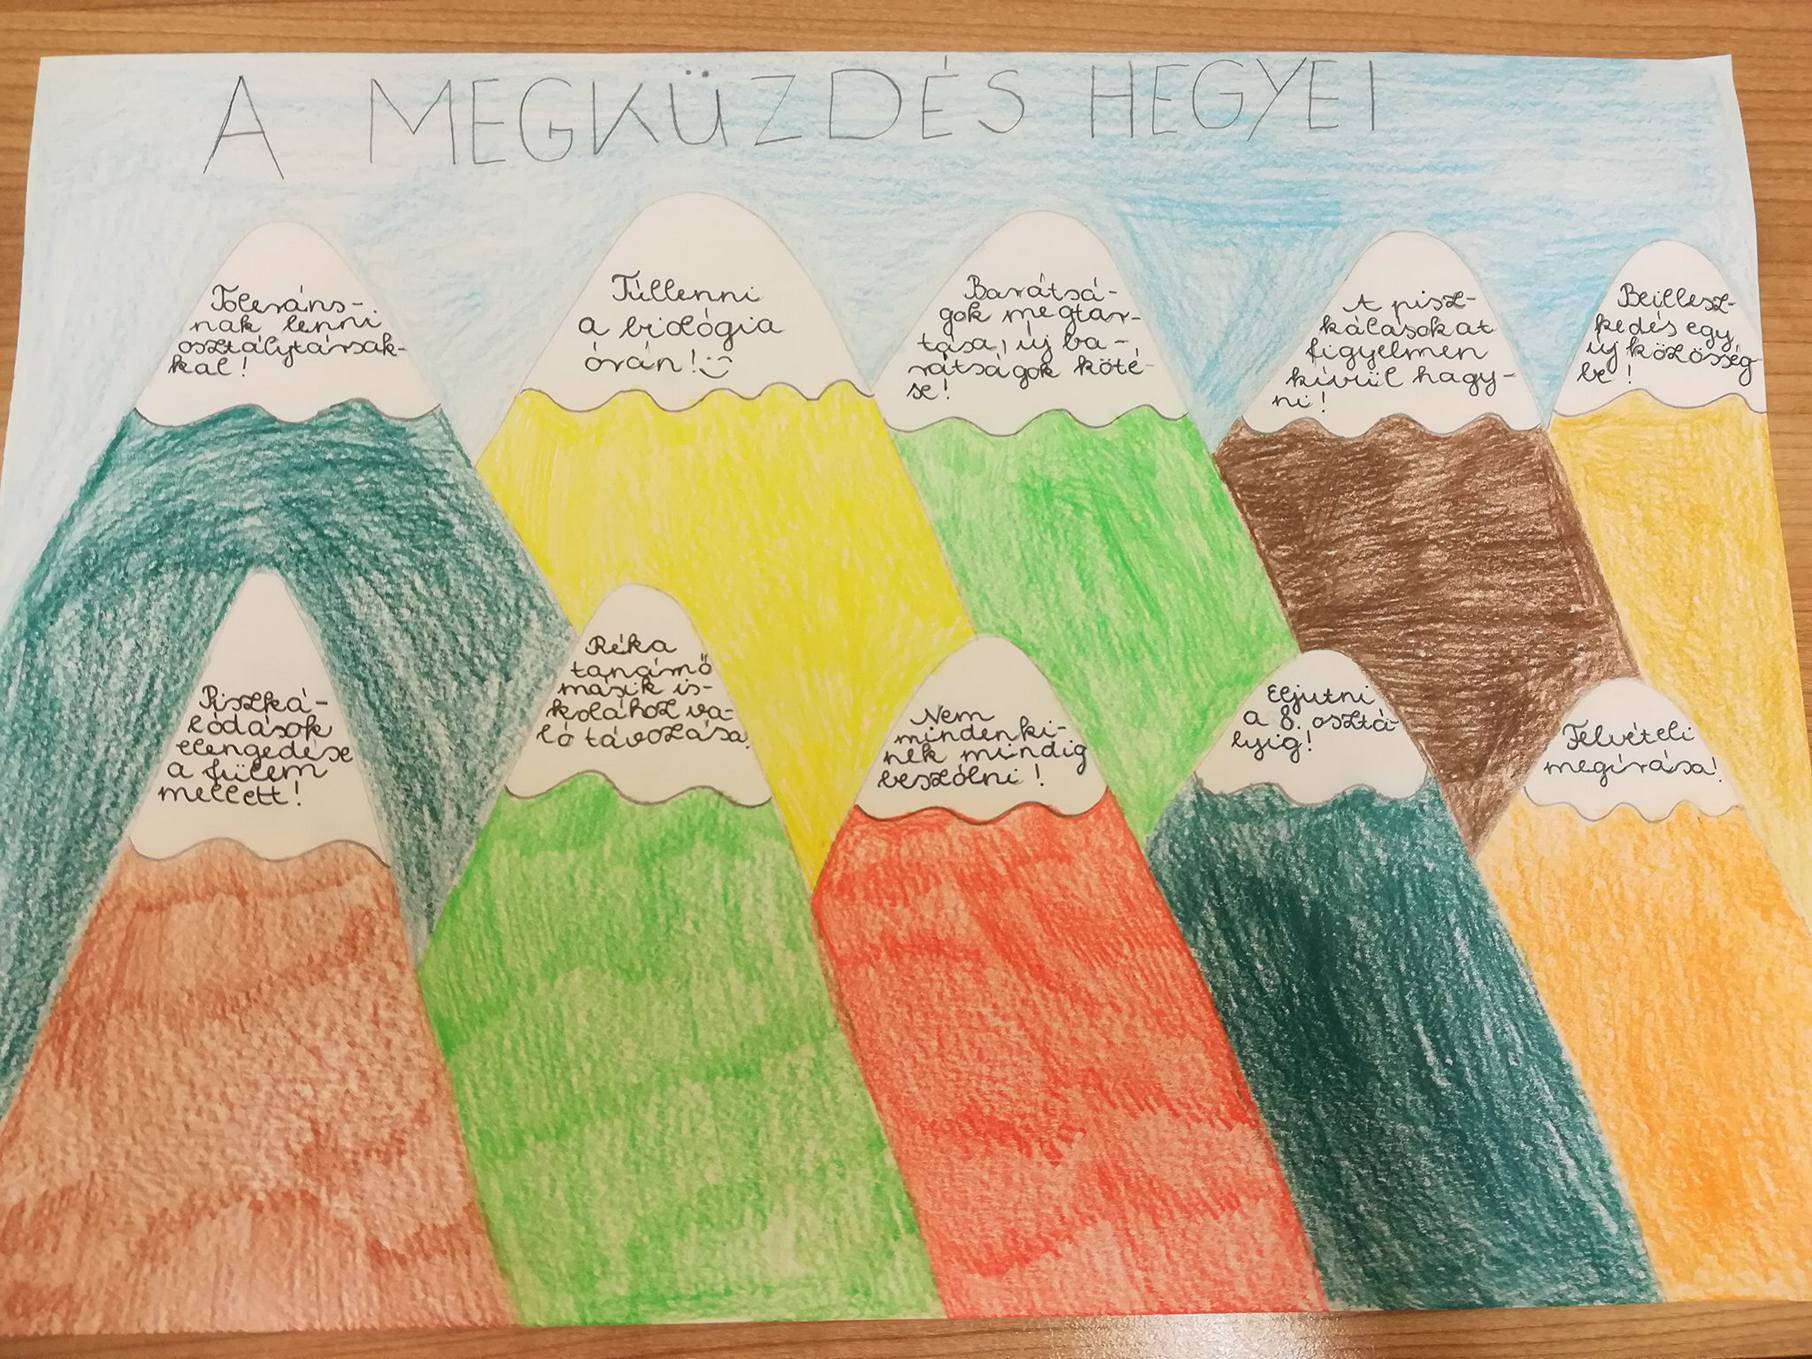 A MEGKÜZDÉS HEGYEI
Toleráns-
nak lenni
osztálytársak-
kal!
Túllenni
a biológia
órán!
Barátsá-
gok megtar-
tása, új ba-
rátságok köté-
se!
A pisz-
kálásokat
figyelmen
kívül hagy-
ni!
Beillesz-
kedés egy
új közösség
be!
Piszká-
lódások
elengedése
a fülem
mellett!
Réka
tanárnő
másik is-
kolához va-
ló távozása.
Nem
mindenki-
nek mindig
beszólni!
Eljutni
a 8. osztá-
lyig!
Felvételi
megírása!